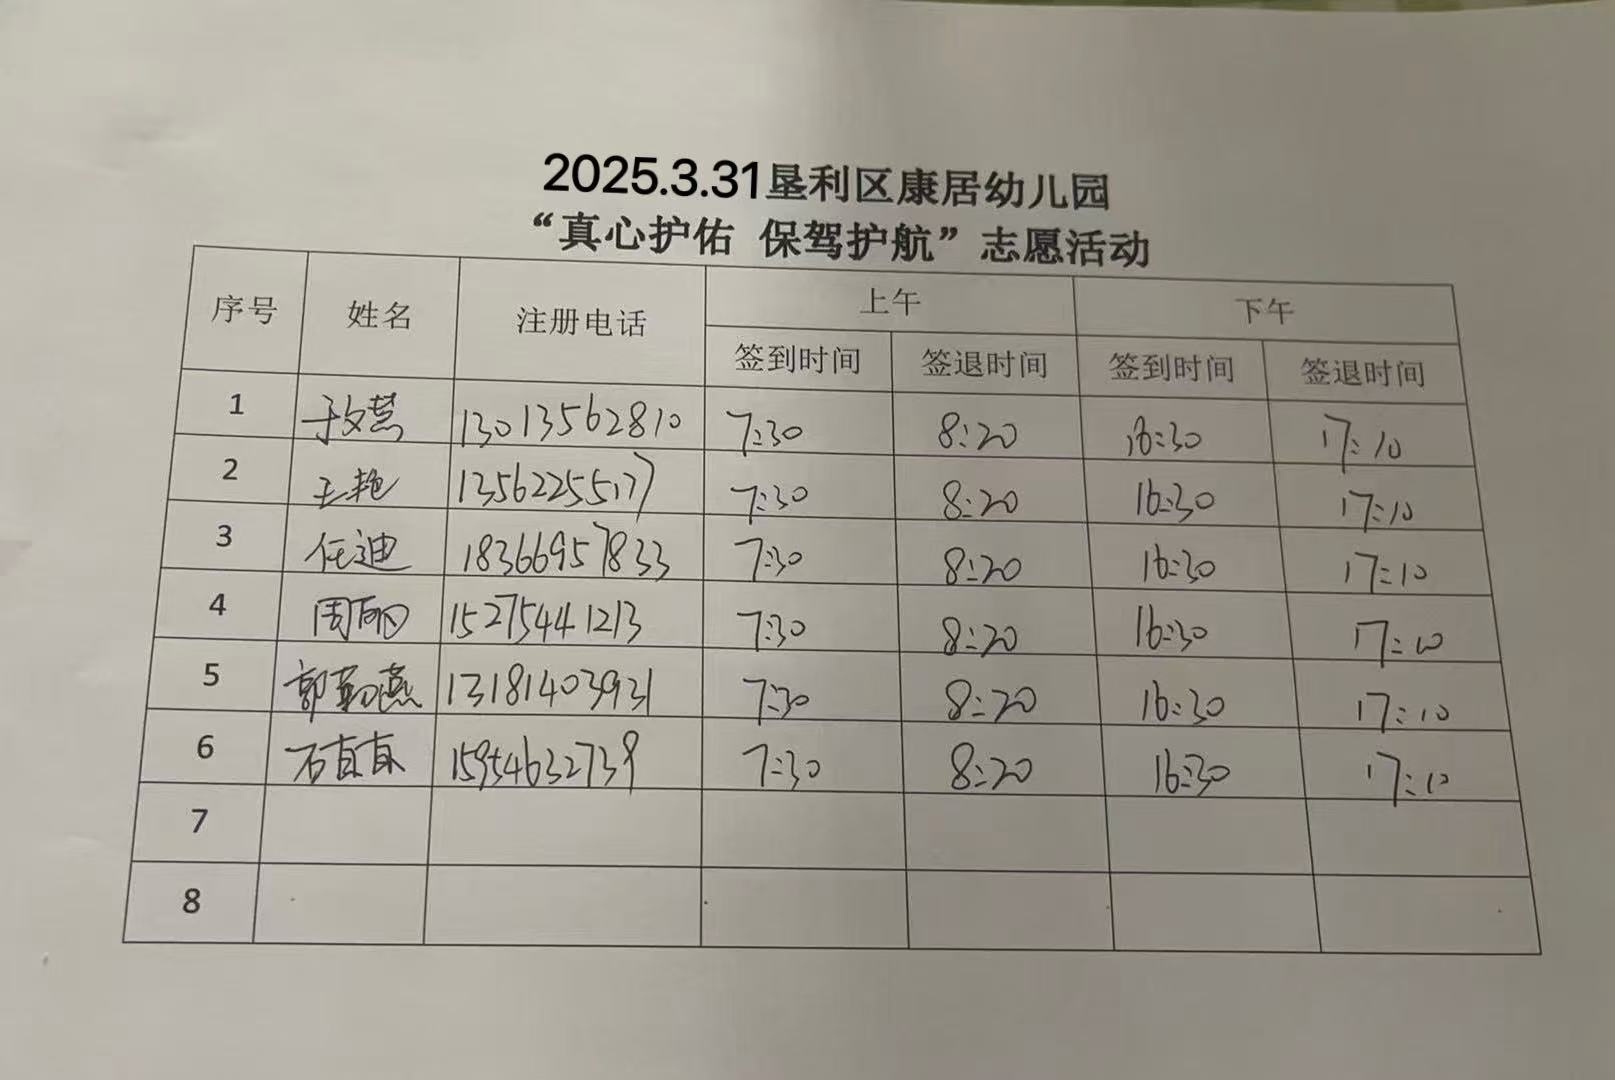 2025.3.31垦利区康居幼儿园
“真心护佑 保驾护航”志愿活动
序号 姓名 注册电话 上午 下午
签到时间 签退时间 签到时间 签退时间
1 于文慧 13013562810 7:30 8:20 16:30 17:10
2 王艳 13562255177 7:30 8:20 16:30 17:10
3 任迪 18366957833 7:30 8:20 16:30 17:10
4 周丽 15275441213 7:30 8:20 16:30 17:10
5 郭勤燕 13181403931 7:30 8:20 16:30 17:10
6 石真真 15954632739 7:30 8:20 16:30 17:10
7
8